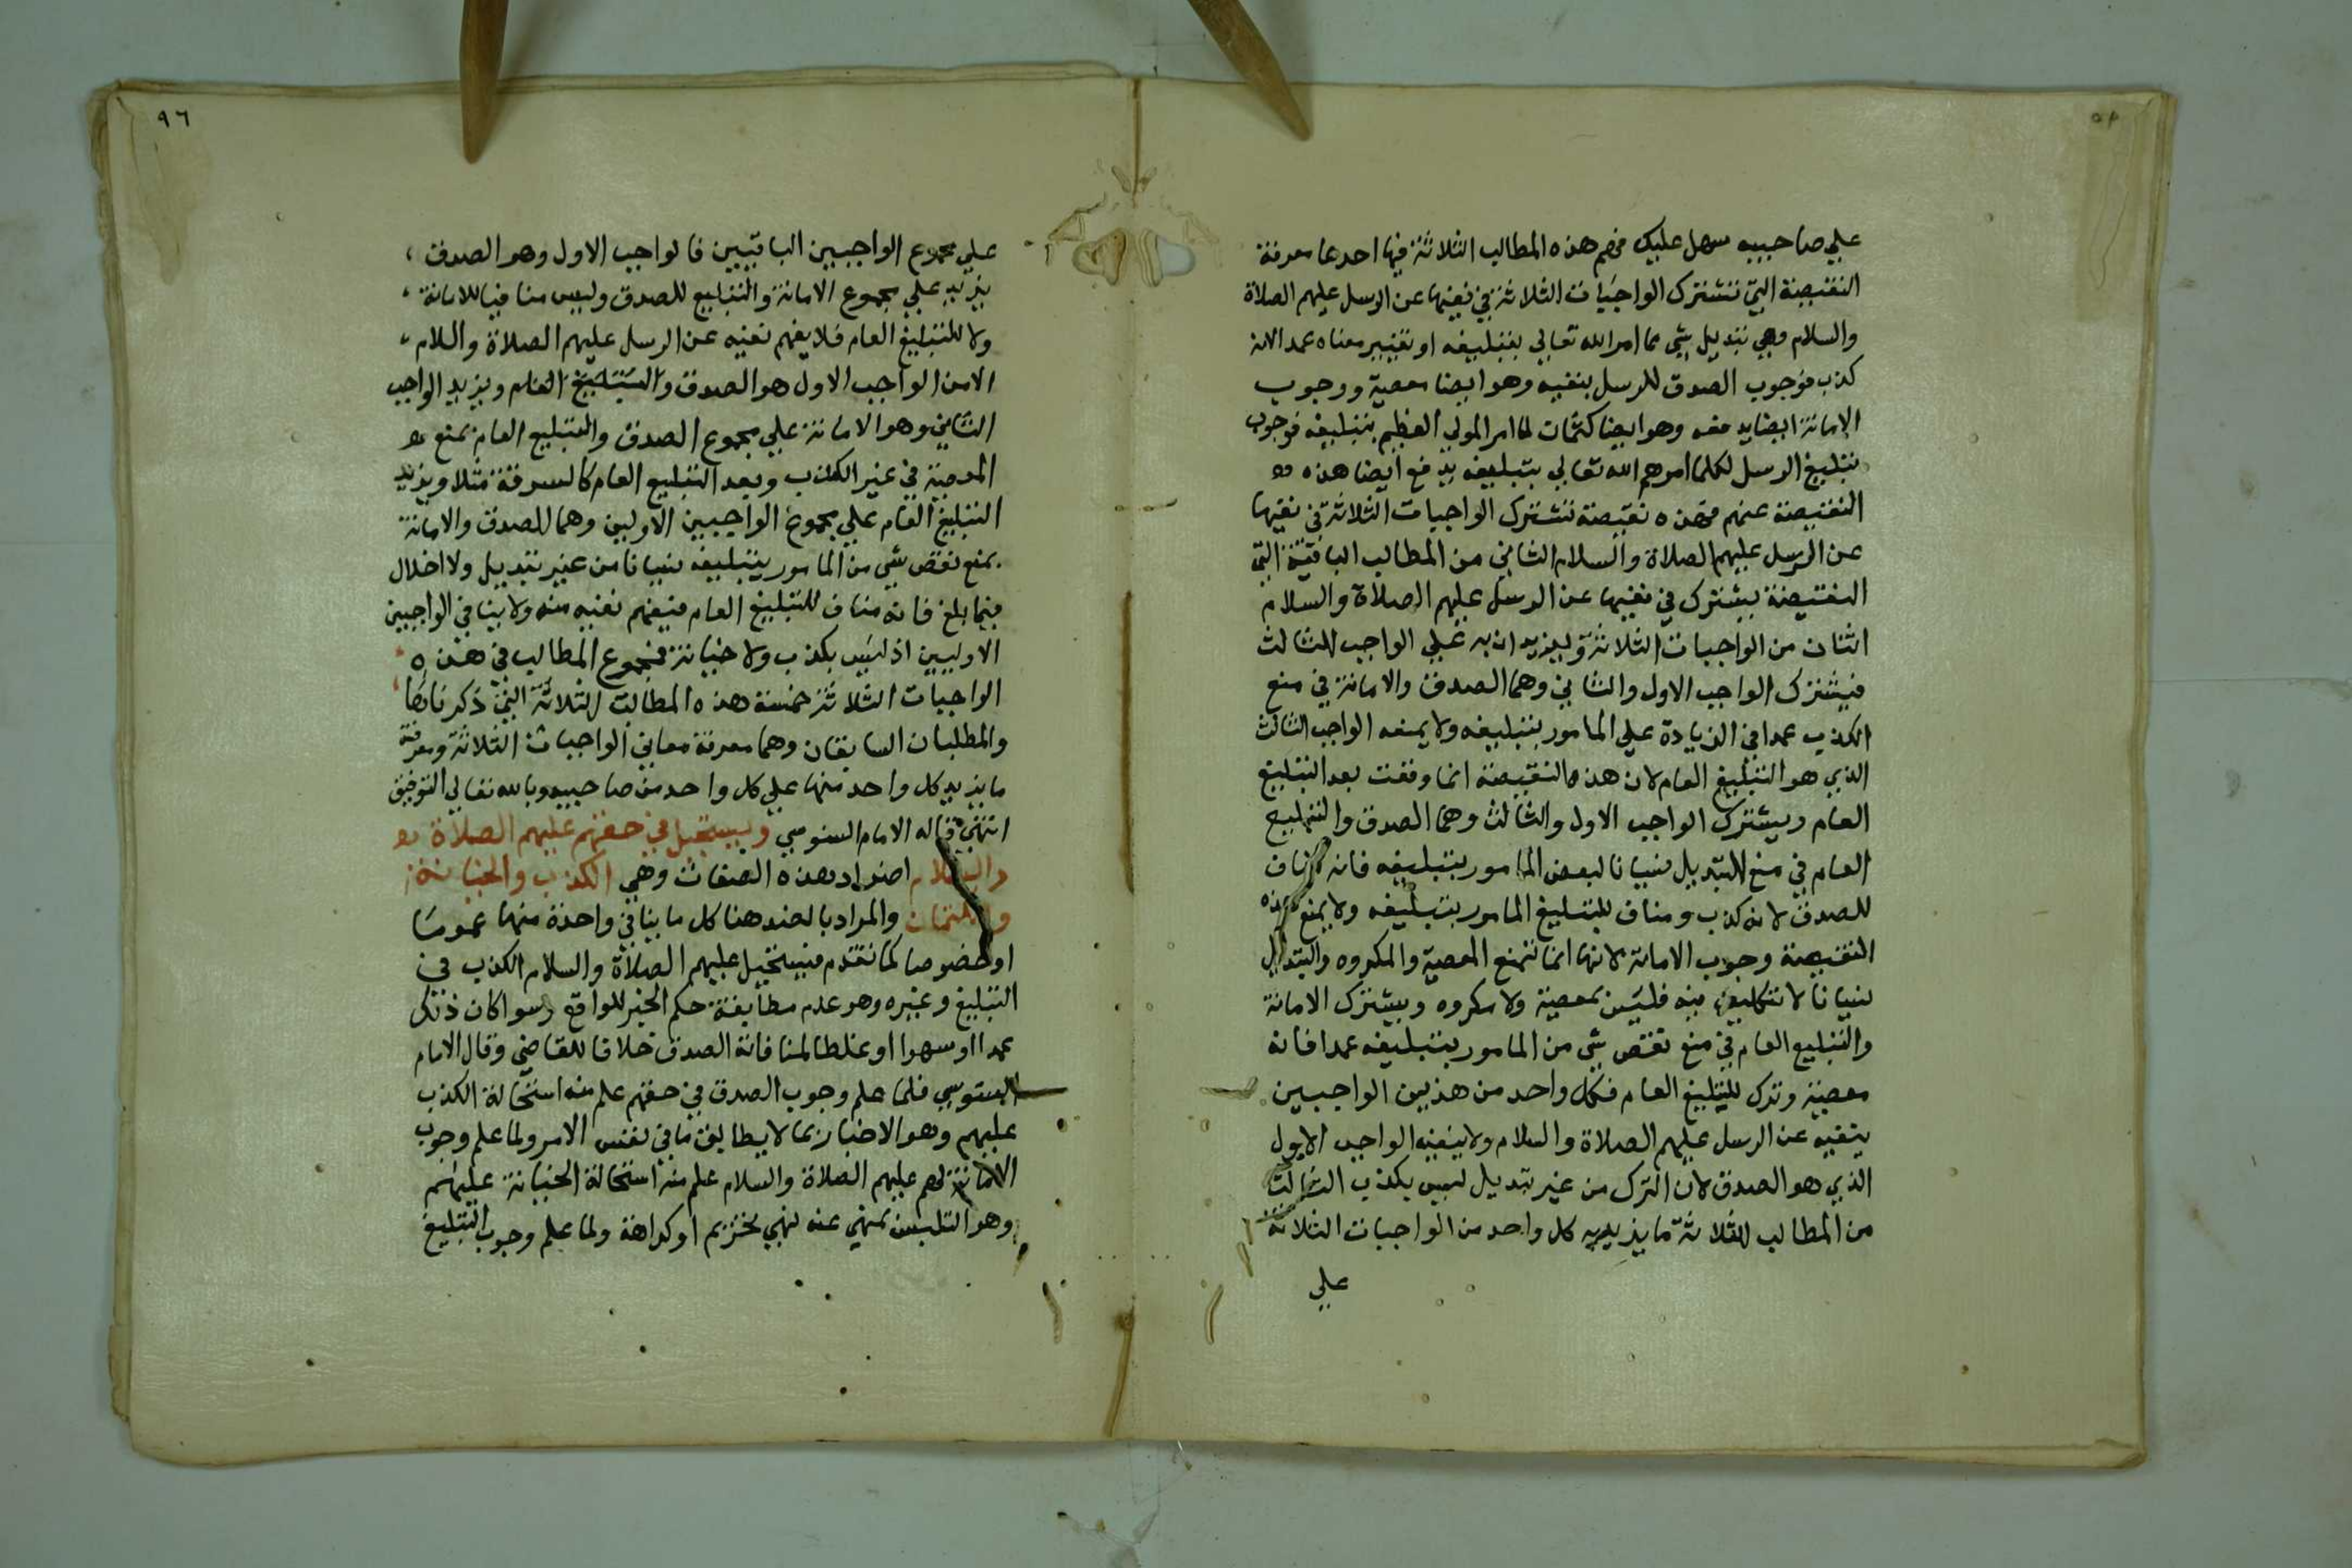 على صاحبيه سهل عليك فهم هذه المطالب الثلاثة فيها احدها معرفة
النقيصة التي تشترك الواجبات الثلاثة في نفيها عن الرسل عليهم الصلاة
والسلام وهي تبديل شي مما امر الله تعالي بتبليغه او تغيير معناه عمدا لانه
كذب فوجوب الصدق للرسل ينفيه وهو ايضا معصية ووجوب
الامانة ايضا يدفعه وهو ايضا كتمان لما امر المولي العظيم بتبليغه فوجوب
تبليغ الرسل لكلما امرهم الله تعالي بتبليغه يدفع ايضا هذه
النقيصة عنهم فهذه نقيصة تشترك الواجبات الثلاثة في نفيها
عن الرسل عليهم الصلاة والسلام الثاني من المطالب الباقية التي
النقيصة يشترك في نفيها عن الرسل عليهم الصلاة والسلام
اثنان من الواجبات الثلاثة ويزيدان به علي الواجب الثالث
فيشترك الواجب الاول والثاني وهما الصدق والامانة في منع
الكذب عمدا في الزيادة علي المامور بتبليغه ولا يمنعه الواجب الثالث
الذي هو التبليغ العام لان هذه النقيصة انما وقعت بعد التبليغ
العام ويشترك الواجب الاول والثالث وهما الصدق والتبليغ
العام في منع التبديل نسيانا لبعض المامور بتبليغه فانه مناف
للصدق لانه كذب ومناف للتبليغ المامور بتبليغه ولا يمنع هذه
النقيصة وجوب الامانة لانها انما تمنع المعصية والمكروه والتبديل
نسيانا لا تكليف فيه فليس بمعصية ولا مكروه ويشترك الامانة
والتبليغ العام في منع نقص شي من المامور بتبليغه عمدا فانه
معصية وترك للتبليغ العام فكل واحد من هذين الواجبين
ينفيه عن الرسل عليهم الصلاة والسلام ولا ينفيه الواجب الاول
الذي هو الصدق لان الترك من غير تبديل ليس بكذب الثالث
من المطالب الثلاثة ما يزيد به كل واحد من الواجبات الثلاثة
علي
٩٦
علي مجموع الواجبين الباقيين فالواجب الاول وهو الصدق
يزيد علي مجموع الامانة والتبليغ للصدق وليس منافيا للامانة
ولا للتبليغ العام فلا يفهم نفيه عن الرسل عليهم الصلاة والسلام
الا من الواجب الاول هو الصدق والتبليغ العام ويزيد الواجب
الثاني وهو الامانة علي مجموع الصدق والتبليغ العام بمنع
المعصية في غير الكذب وبعد التبليغ العام كالسرقة مثلا ويزيد
التبليغ العام علي مجموع الواجبين الاولين وهما الصدق والامانة
بمنع نقص شي من المامور بتبليغه نسيانا من غير تبديل ولا اخلال
فيما بلغ فانه مناف للتبليغ العام فيفهم نفيه منه ولا ينافي الواجبين
الاوليين اذ ليس بكذب ولا خيانة فمجموع المطالب في هذه
الواجبات الثلاثة خمسة هذه المطالب الثلاثة التي ذكرناها
والمطلبان السابقان وهما معرفة معاني الواجبات الثلاثة ومعرفة
ما يزيد كل واحد منها علي كل واحد من صاحبيه وبالله تعالي التوفيق
انتهي قاله الامام السنوسي ويستحيل في حقهم عليهم الصلاة
والسلام اضداد هذه الصفات وهي الكذب والخيانة
والكتمان والمراد بالضد هنا كل ما ينافي واحدة منها عموما
او خصوصا كما تقدم فيستحيل عليهم الصلاة والسلام الكذب في
التبليغ وغيره وهو عدم مطابقة حكم الخبر للواقع وسوا كان ذلك
عمدا او سهوا او غلطا لمنافاته الصدق خلافا للقاضي وقال الامام
السنوسي فلما علم وجوب الصدق في حقهم علم منه استحالة الكذب
عليهم وهو الاخبار بما لا يطابق ما في نفس الامر ولما علم وجوب
الامانة لهم عليهم الصلاة والسلام علم منه استحالة الخيانة عليهم
وهو التلبس بمنهي عنه نهي تحريم او كراهة ولما علم وجوب التبليغ